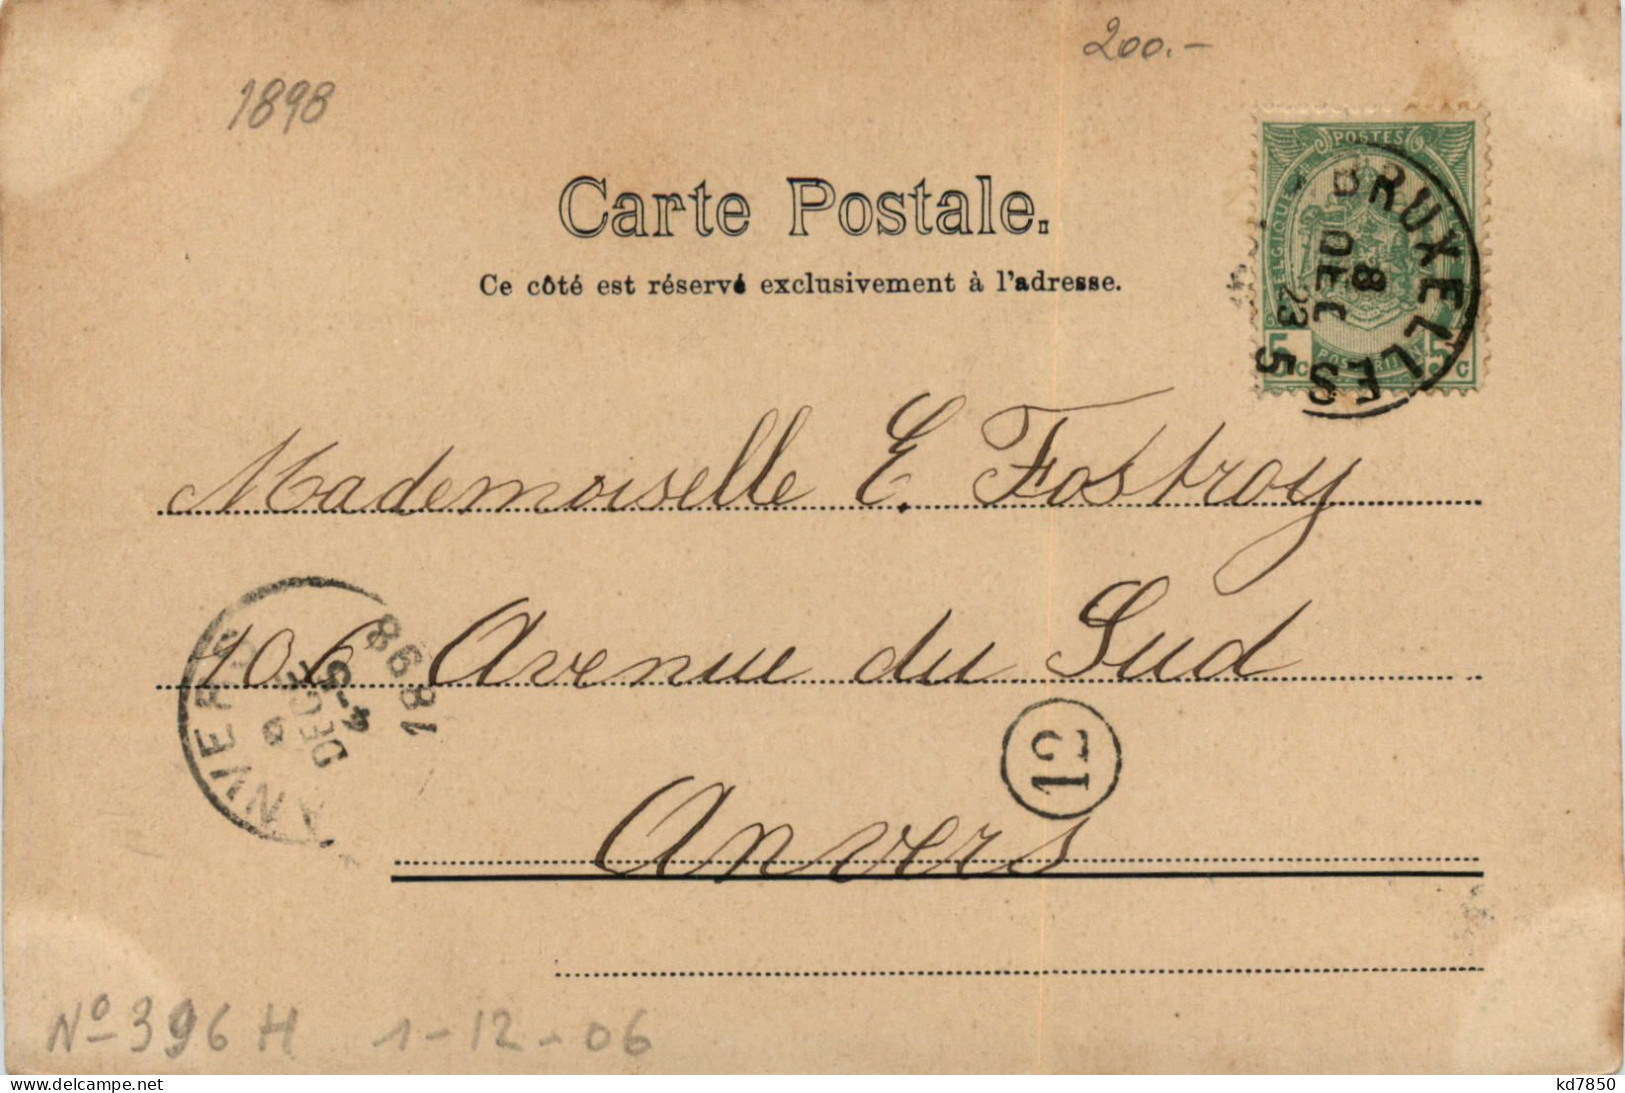 200.-
1898
POSTES
BELGIQUE
5 C
5 C
BRUXELLES 5
8
DEC
23
Carte Postale.
Ce côté est réservé exclusivement à l'adresse.
Mademoiselle E. Fostroy
106 Avenue du Sud
Anvers
ANVERS
9
DEC
4-5
1898
12
Nº 396 H 1-12-06
kd7850